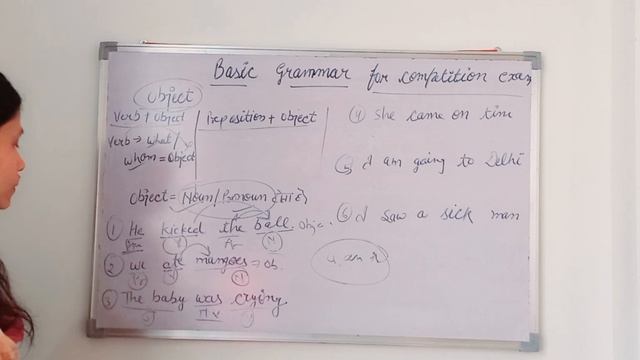 Basic Grammar for compatition exam
Object
Verb + Object
Verb → what /
whom = Object
Preposition + Object
Object = Noun/Pronoun होता है
① He kicked the ball. Obje.
V
N
② we ate mangoes = ob.
V
N
③ The baby was crying.
H.V
④ She came on time
⑤ I am going to Delhi
⑥ I saw a sick man